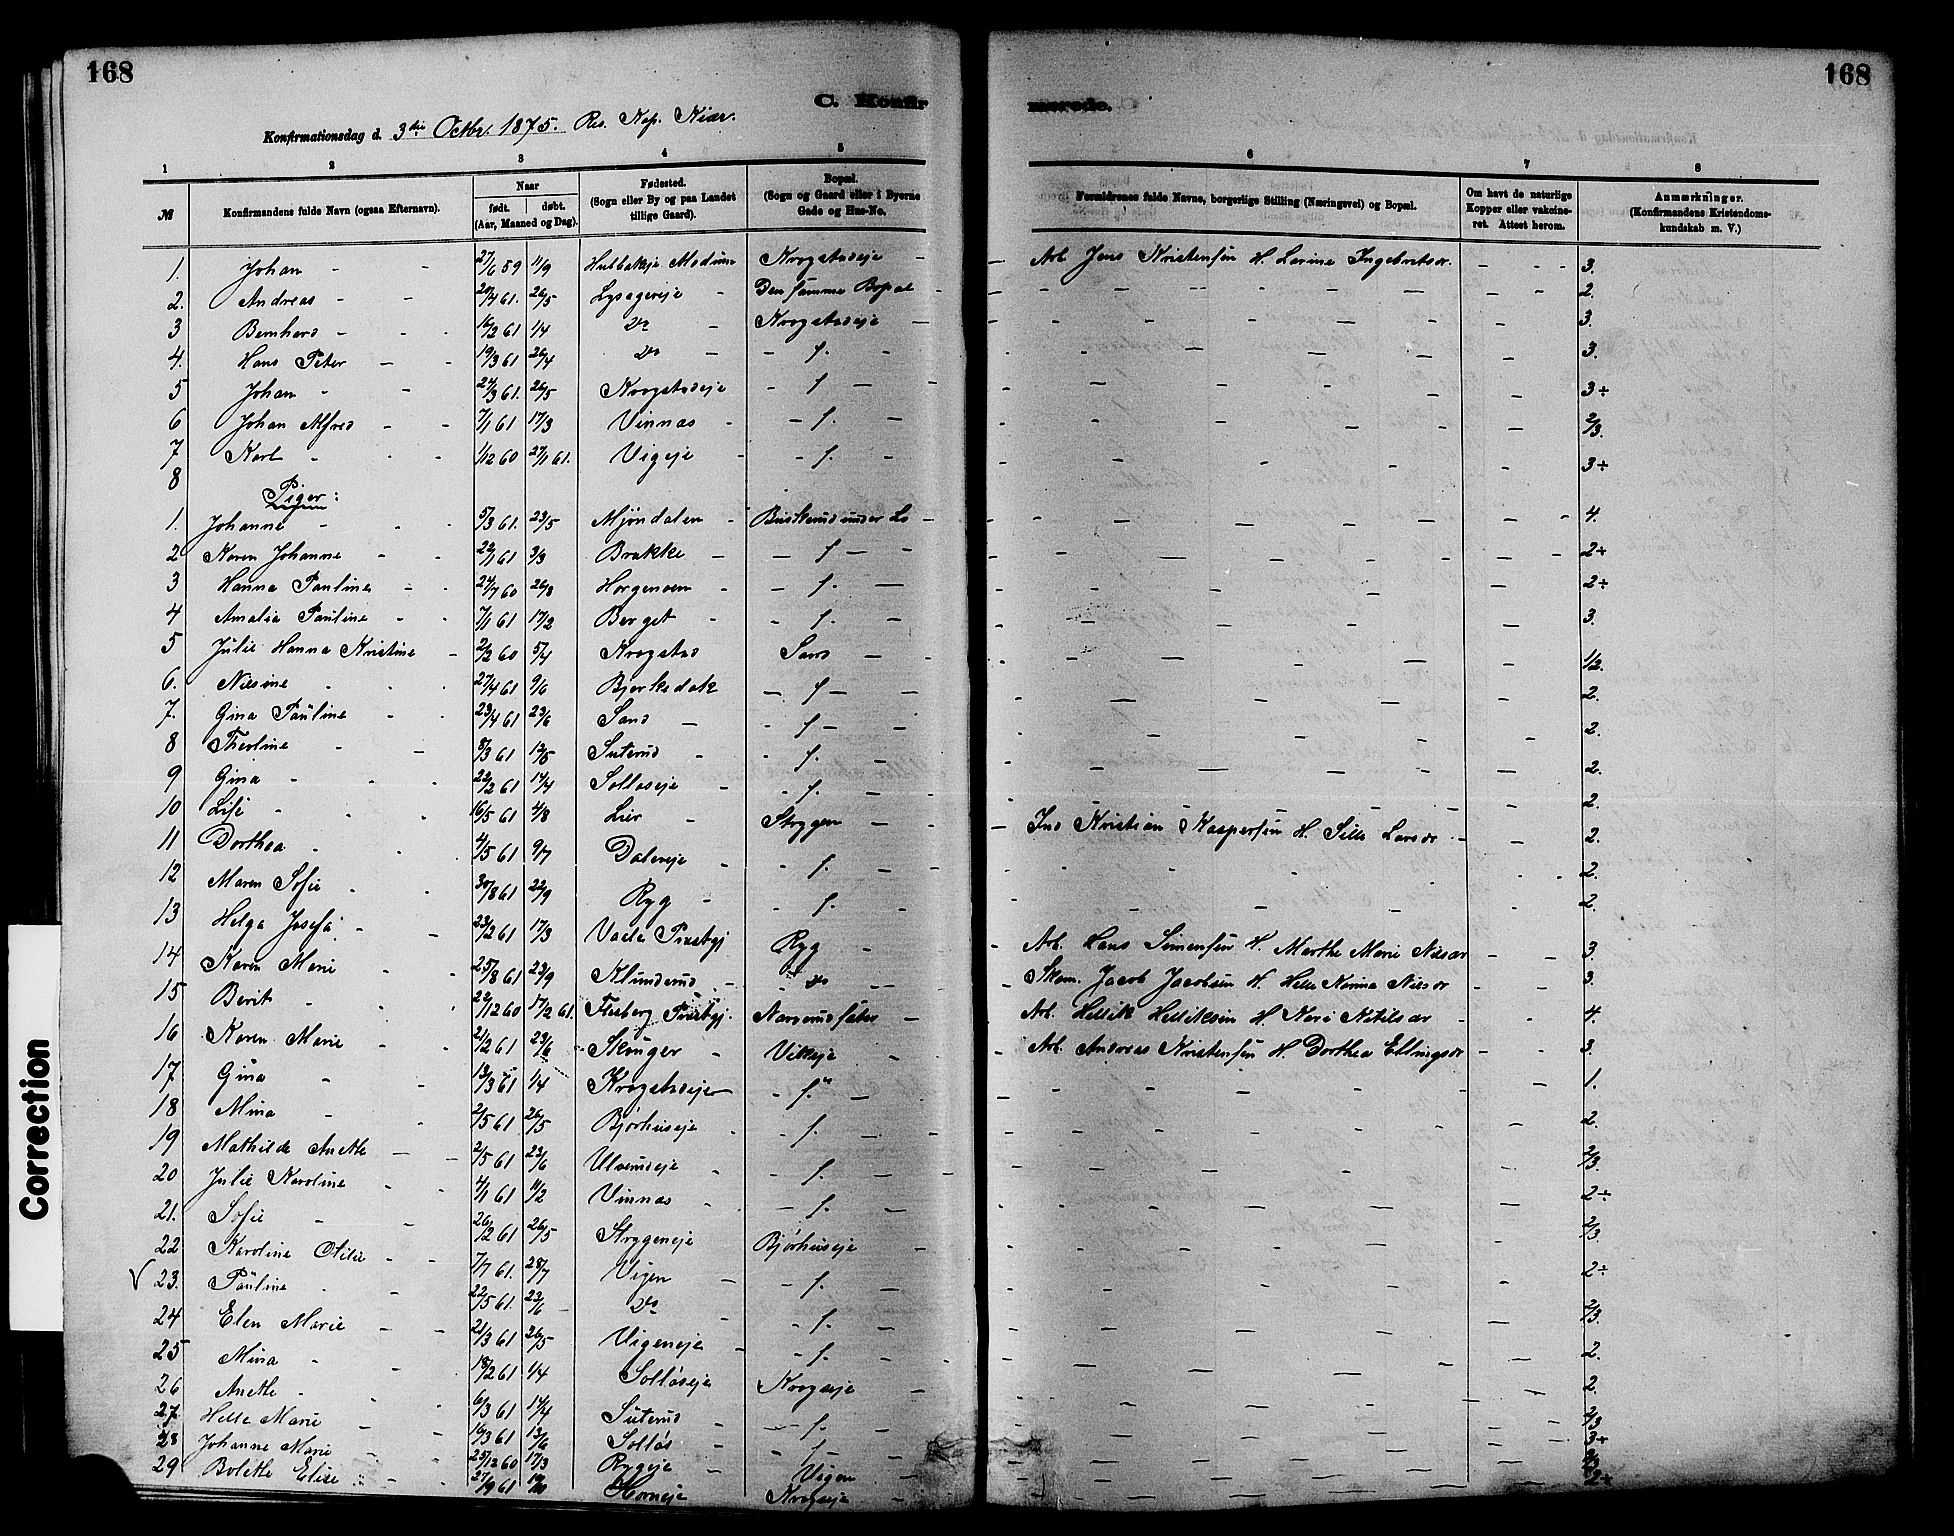 168
168
C. Konfir
merede.
Konfirmationsdag d. 3die Octbr. 1875. Res. Kap. Kiær.
1 2 3 4 5 6 7 8
№ Konfirmandens fulde Navn (ogsaa Efternavn). Naar født. døbt. (Aar, Maaned og Dag). Fødested. (Sogn eller By og paa Landet tillige Gaard). Bopæl. (Sogn og Gaard eller i Byerne Gade og Hus-No. Forældrenes fulde Navne, borgerlige Stilling (Næringsvei) og Bopæl. Om havt de naturlige Kopper eller vakcineret. Attest herom. Anmærkninger. (Konfirmandens Kristendomskundskab m. V.)
1. Johan - - 27/6 59 11/9 Modum Krogstadeje - Arb Jens Kristensen H. Lavine Ingebretsdr. - - - 3.
2. Andreas - - 20/4 61. 26/5 Lysagereje - Den samme Bopæl - 2.
3 Bernhard - - - 16/2 61 1/4 Do - Krogstadeje - 3.
4. Hans Peter - - 19/3 61 26/4 Do - - f. - 3.
5 Johan - - 27/3 61. 26/5 Krogstadeje - f - - 3÷
6 Johan Alfred - - 7/1 61 17/3 Vinnas - - f. - 2/3.
7 Karl - - - 1/12 60 27/1 61. Vigeje - - f. - 3÷
8
Piger:
1. Johanne - - 5/3 61. 23/5 Mjöndalen - Buskerud under Lo - 4.
2 Karen Johanne - - 22/1 61 3/3 Brakke - - f - - 2÷
3 Hanna Pauline - - 24/7 60 26/8 Horgenoen - - f. - 2÷
4 Amalia Pauline - - 7/1 61 17/2 Berget - - f. - 3.
5 Julie Hanna Kristine - 2/2 60 5/4 Krogstad Sand - - 1/2.
6. Nilsine - - - 27/4 61 9/6 Bjerksdok - f - - 2.
7. Gina Pauline - - 23/4 61 23/6 Sand - - f - - 2.
8 Theoline - - 8/3 61 13/5 Suterud - - f. - 2.
9 Gina - - - 22/2 61 14/4 Solløseje - - f. - 2.
10 Lise - - - 16/5 61 4/8 Lier - Strygen - - Ind Kristian Kaspersen H. Sille Larsdr - 2.
11 Dorthea - - 4/5 61 9/7 Daleeje - - f. - 2.
12 Maren Sofie - - 30/8 61 22/9 Ryg - - f. - 2.
13 Helga Josefa - - 23/2 61 17/3 Præstgj Ryg - - Arb. Hans Simensen H. Marthe Marie Nilsdr - - 3.
14 Karen Marie - - 25/8 61 23/9 Klunderud - - Do - - Skom. Jacob Jacobsen H Helle Nanna Nilsdr - - 3.
15 Berit - - 22/12 60 17/2 61. Flesberg Præstgj. Narverudsæter - Arb. Hellik Helliksen H. Kari Kitilsdr - - 4.
16 Karen Marie - - 21/2 61 23/6 Skruger - Vikeeje - - Arb. Andreas Kristensen H. Dorthea Ellingsdr - - 3.
17 Gina - - 13/3 61 1/4 Krogstadeje - f. - 1.
18 Mina - - 2/5 61 26/5 Bjørhuseje - f. - - 2.
19 Mathilde Anette - - 2/5 61 23/6 Ulverudeje - - f. - 2/3.
20 Julie Karoline - - 4/1 61 11/2 Vinnas - - f. - 2÷
21. Sofie - - 26/2 61 26/5 Strygeneje Bjørhuseje - 2/3.
22 Karoline Otilie - - 7/7 61. 28/7 Vigen - - f. - 2÷
√ 23. Pauline - - 22/5 61. 23/6 Do - - f. - 2/3.
24 Elen Marie - - 21/3 61 26/5 Vigeneje - - f. - 2.
25 Mina - 18/2 61 1/4 Solløseje Krogseje - 2.
26 Anette - - 6/3 61 14/4 Suterud - - f. - 2/3
27 Helle Marie - - 16/3 61 13/6 Solløs - - f - 3÷
28 Johanne Marie - - 25/12 60 17/3 Rygeje - Vigen - 2/3
29 Bolette Elise - - 27/9 61 Horneje Krogseje - 2÷
Correction